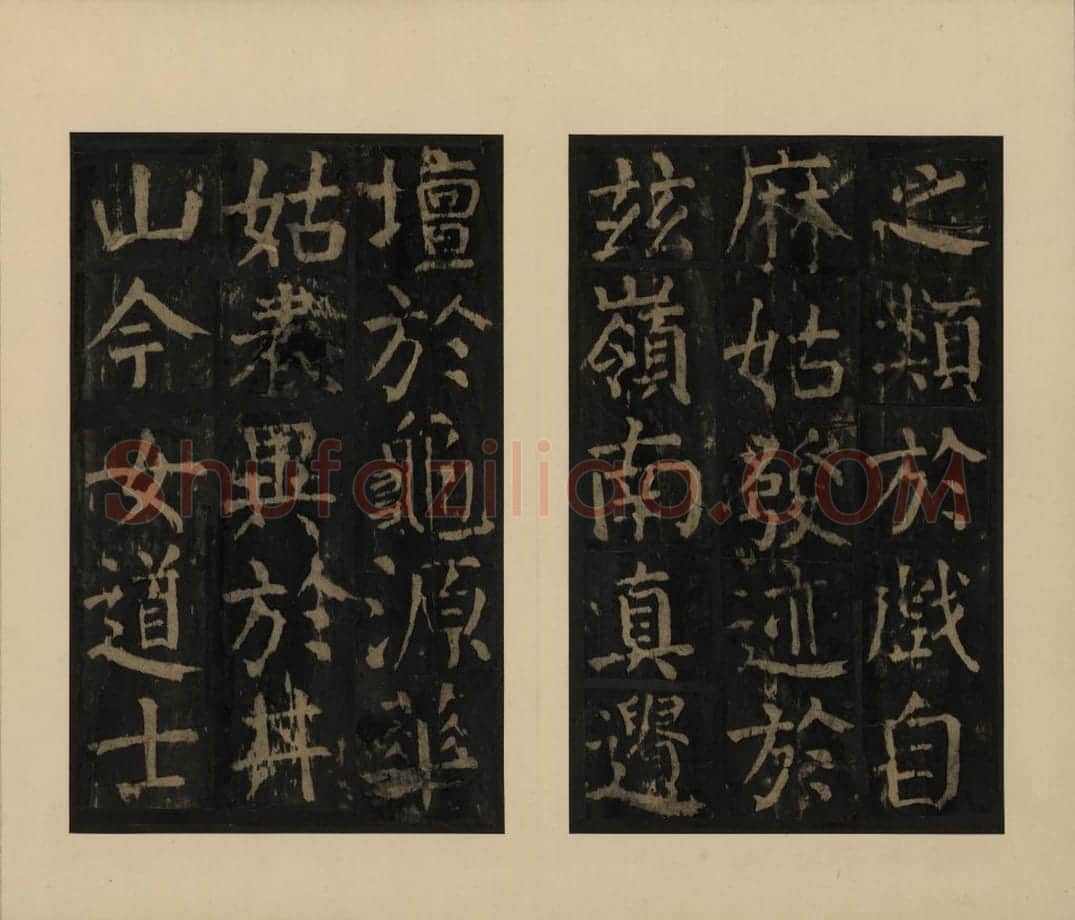 之類於戲自
麻姑發迹於
兹嶺南真遺
壇於龜源華
姑表異於井
山今女道士
Shufaziliao.COM